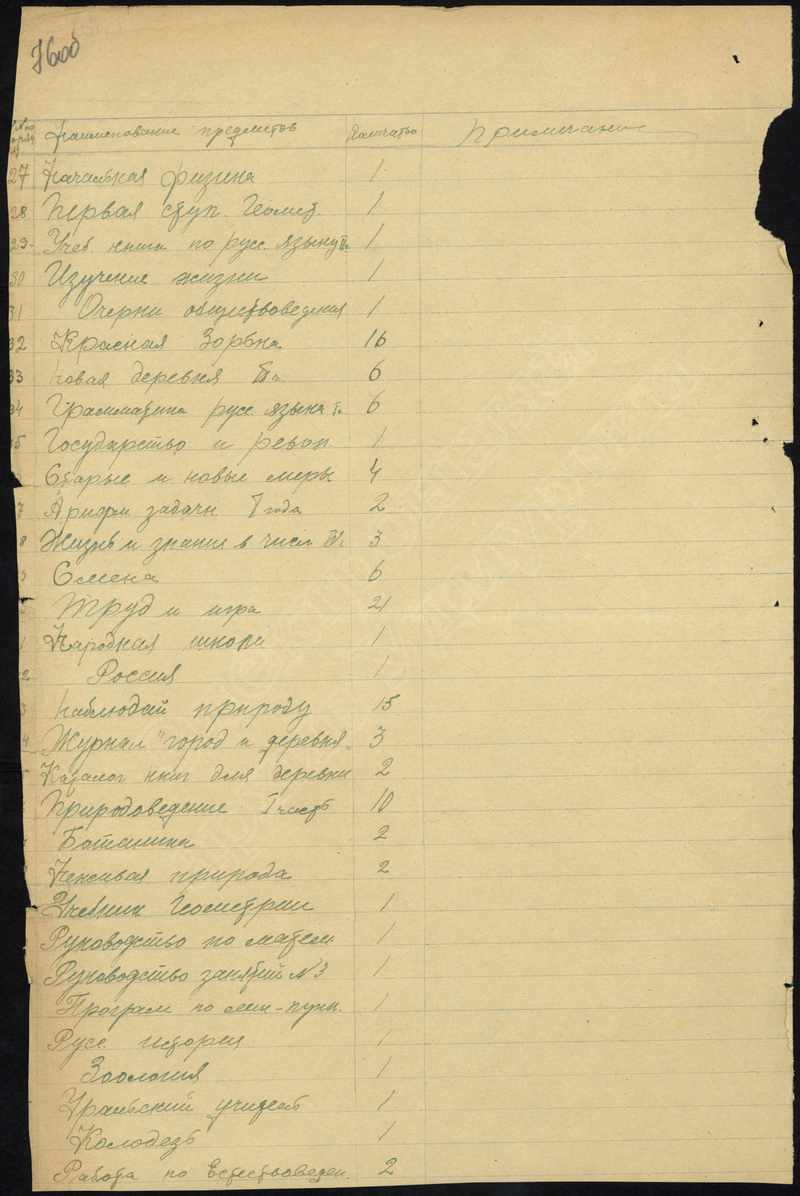 76об
№ по поряд Наименование предметов Количество Примечание
27 Начальная физика 1
28 Первая ступ. Геомет. 1
29 Учеб книга по русс. языку 1
30 Изучение жизни 1
31 Очерки обществоведения 1
32 Красная Зорька 16
33 Новая деревня 6
34 Грамматика русс. языка 6
35 Государство и револ 1
Старые и новые меры 4
7 Арифм задачи I года 2
8 Жизнь и знание в числ 3
Смена 6
Труд и игра 21
1 Народная школа 1
2 Россия 1
3 Наблюдай природу 15
4 Журнал "город и деревня 3
Каталог книг для деревни 2
Природоведение I часть 10
Ботаника 2
Неживая природа 2
Учебник Геометрии 1
Руководство по матем. 1
Руководство занятий № 3 1
Програм по лик-пунк. 1
Русс история 1
Зоология 1
Уральский учитель 1
Колодезь 1
Работа по Естествоведен. 2